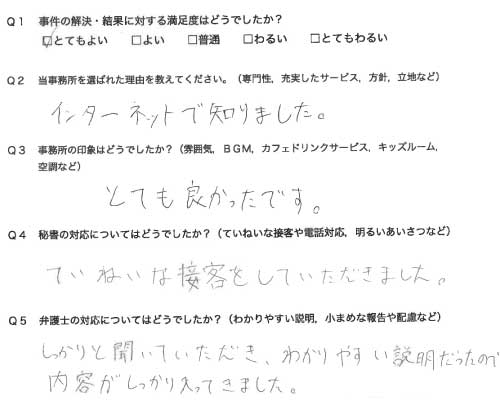 Q1 事件の解決・結果に対する満足度はどうでしたか？
☑とてもよい □よい □普通 □わるい □とてもわるい
Q2 当事務所を選ばれた理由を教えてください。（専門性，充実したサービス，方針，立地など）
インターネットで知りました。
Q3 事務所の印象はどうでしたか？（雰囲気，BGM，カフェドリンクサービス，キッズルーム，
空調など）
とても良かったです。
Q4 秘書の対応についてはどうでしたか？（ていねいな接客や電話対応，明るいあいさつなど）
ていねいな接客をしていただきました。
Q5 弁護士の対応についてはどうでしたか？（わかりやすい説明，小まめな報告や配慮など）
しっかりと聞いていただき、わかりやすい説明だったので
内容がしっかり入ってきました。